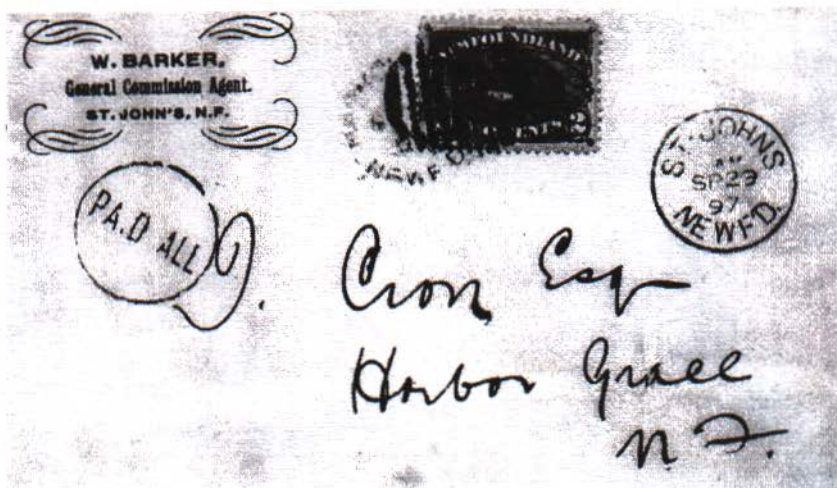 W. BARKER,
General Commission Agent.
ST. JOHN'S, N.F.
NEWFOUNDLAND
2
NEWF'D
ST. JOHNS
AM
SP 29
97
NEWF'D.
PA.D ALL
Esq
Harbor Grace
N. F.